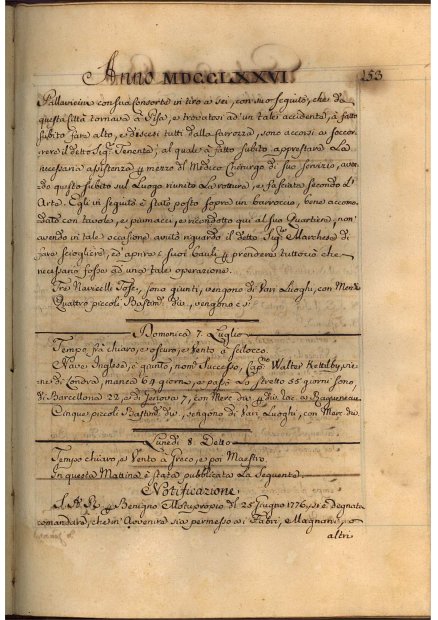 Anno MDCCLXXVI. 153
Pallavicini con sua Consorte in tiro a sei, con suo seguito, che da
questa Città tornava a Pisa, e trovatosi ad un tale accidente, à fatto
subito fare alto, e scesi tutti dalla Carrozza, sono accorsi a soccor-
rere il detto Sigr. Tenente; al quale à fatto subito apprestare la
necessaria assistenza per mezzo del Medico Chirurgo di suo servizio, aven
do questo subito sul Luogo riunito la rottura, e fasciata secondo l'
Arte. Egli in seguito è stato posto sopra un barroccio, bene accomo-
dato con tavole, e piumacci, e ricondotto qui al suo Quartiere, non
avendo in tale occasione avuto riguardo il detto Sigr. Marchese di
fare sciogliere, ed aprire i suoi bauli per prendere tuttociò che
necessario fosse ad una tale operazione.
Tre Navicelli Tosc. sono giunti, vengono di Vari Luoghi, con Merc
Quattro piccoli Bastim. div. vengono
Domenica 7. Luglio
Tempo fra chiaro, e oscuro, e Vento a Scilocco.
Nave Inglesa, è giunto, nom. Successo, Capno. Walter Kettilby, vie-
ne di Londra, manca 64 giorni, e passò lo stretto 55 giorni sono,
di Barcellona 22, e di Genova 7, con Merc. div. per div. rac. a
Cinque piccoli Bastim. div. vengono di Vari Luoghi, con Merc. div.
Lunedì 8. Detto
Tempo chiaro, e Vento a Greco, e poi Maestro.
In questa Mattina è stata pubblicata La Seguente.
Notificazione
S. A. R. per Benigno Motuproprio del 25 Giugno 1776, si è degnata
comandare, che in Avvenire sia permesso ai Fabri, Magnani, o
altri